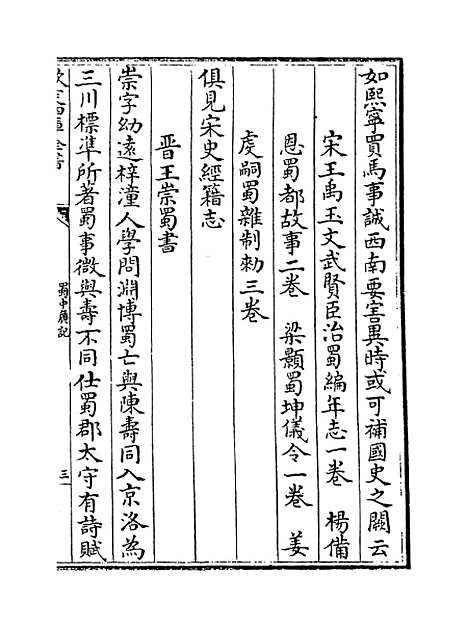 如熙寧買馬事誠西南要害異時或可補國史之闕云
宋王禹玉文武賢臣治蜀編年志一卷　楊備
恩蜀都故事二卷　梁顥蜀坤儀令一卷　姜
虔嗣蜀雜制勅三卷
俱見宋史經籍志
晋王崇蜀書
崇字幼遠梓潼人學問淵博蜀亡與陳壽同入京洛為
三川標準所著蜀事微與壽不同仕蜀郡太守有詩賦
蜀中廣記
三